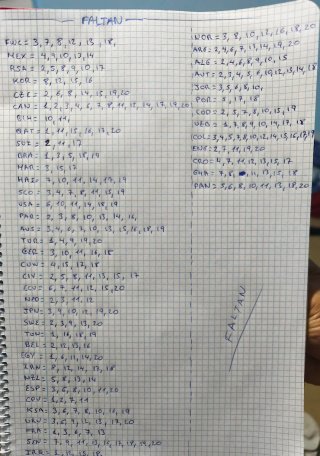 FALTAN
FWC = 3, 7, 8, 12, 13, 18,
MEX = 4, 9, 10, 13, 14
RSA = 2, 5, 8, 9, 10, 17
KOR = 8, 12, 15, 16
CZE = 2, 6, 8, 14, 15, 19, 20
CAN = 1, 2, 3, 4, 6, 7, 8, 11, 12, 14, 17, 19, 20
BIH = 10, 11,
QAT = 1, 11, 15, 16, 17, 20
SUI = 2, 11, 17
BRA = 1, 3, 5, 18, 19
MAR = 3, 15, 17
HAI = 7, 10, 11, 14, 17, 19
SCO = 3, 4, 7, 8, 11, 15, 19
USA = 6, 10, 11, 14, 18, 19
PAR = 2, 3, 8, 10, 13, 14, 16,
AUS = 3, 4, 6, 7, 10, 13, 15, 16, 18, 19
TUR = 1, 4, 9, 19, 20
GER = 3, 10, 11, 16, 18
CUW = 4, 15, 17, 18
CIV = 2, 5, 8, 11, 13, 15, 17
ECU = 6, 7, 11, 12, 15, 20
NED = 2, 3, 11, 12
JPN = 3, 9, 10, 12, 19, 20
SWE = 2, 3, 9, 13, 20
TUN = 1, 16, 18, 19
BEL = 2, 12, 13, 16
EGY = 1, 6, 11, 14, 20
IRN = 8, 12, 14, 17, 18
NZL = 5, 8, 13, 14
ESP = 3, 6, 8, 10, 11, 20
CPV = 1, 2, 7, 11
KSA = 3, 6, 7, 8, 10, 11, 19
URU = 3, 6, 9, 12, 13, 17, 20
FRA = 1, 3, 6, 7, 13
SEN = 7, 9, 11, 13, 15, 17, 18, 19, 20
IRQ = 1, 12, 15, 18,
NOR = 3, 8, 10, 12, 16, 18, 20
ARG = 2, 4, 6, 7, 13, 14, 19, 20
ALG = 2, 4, 6, 8, 9, 10, 15
AUT = 2, 3, 4, 5, 6, 10, 12, 13, 14, 18
JOR = 3, 5, 6, 8, 10,
POR = 5, 17, 18
COD = 2, 3, 7, 8, 10, 15, 19
UZB = 6, 7, 8, 9, 10, 14, 17, 18
COL = 3, 4, 5, 7, 8, 10, 12, 14, 13, 15, 16, 17, 19
ENG = 2, 7, 11, 19, 20
CRO = 4, 7, 11, 12, 13, 15, 17
GHA = 7, 8, 11, 13, 15, 18
PAN = 5, 6, 8, 10, 11, 13, 18, 20
FALTAN